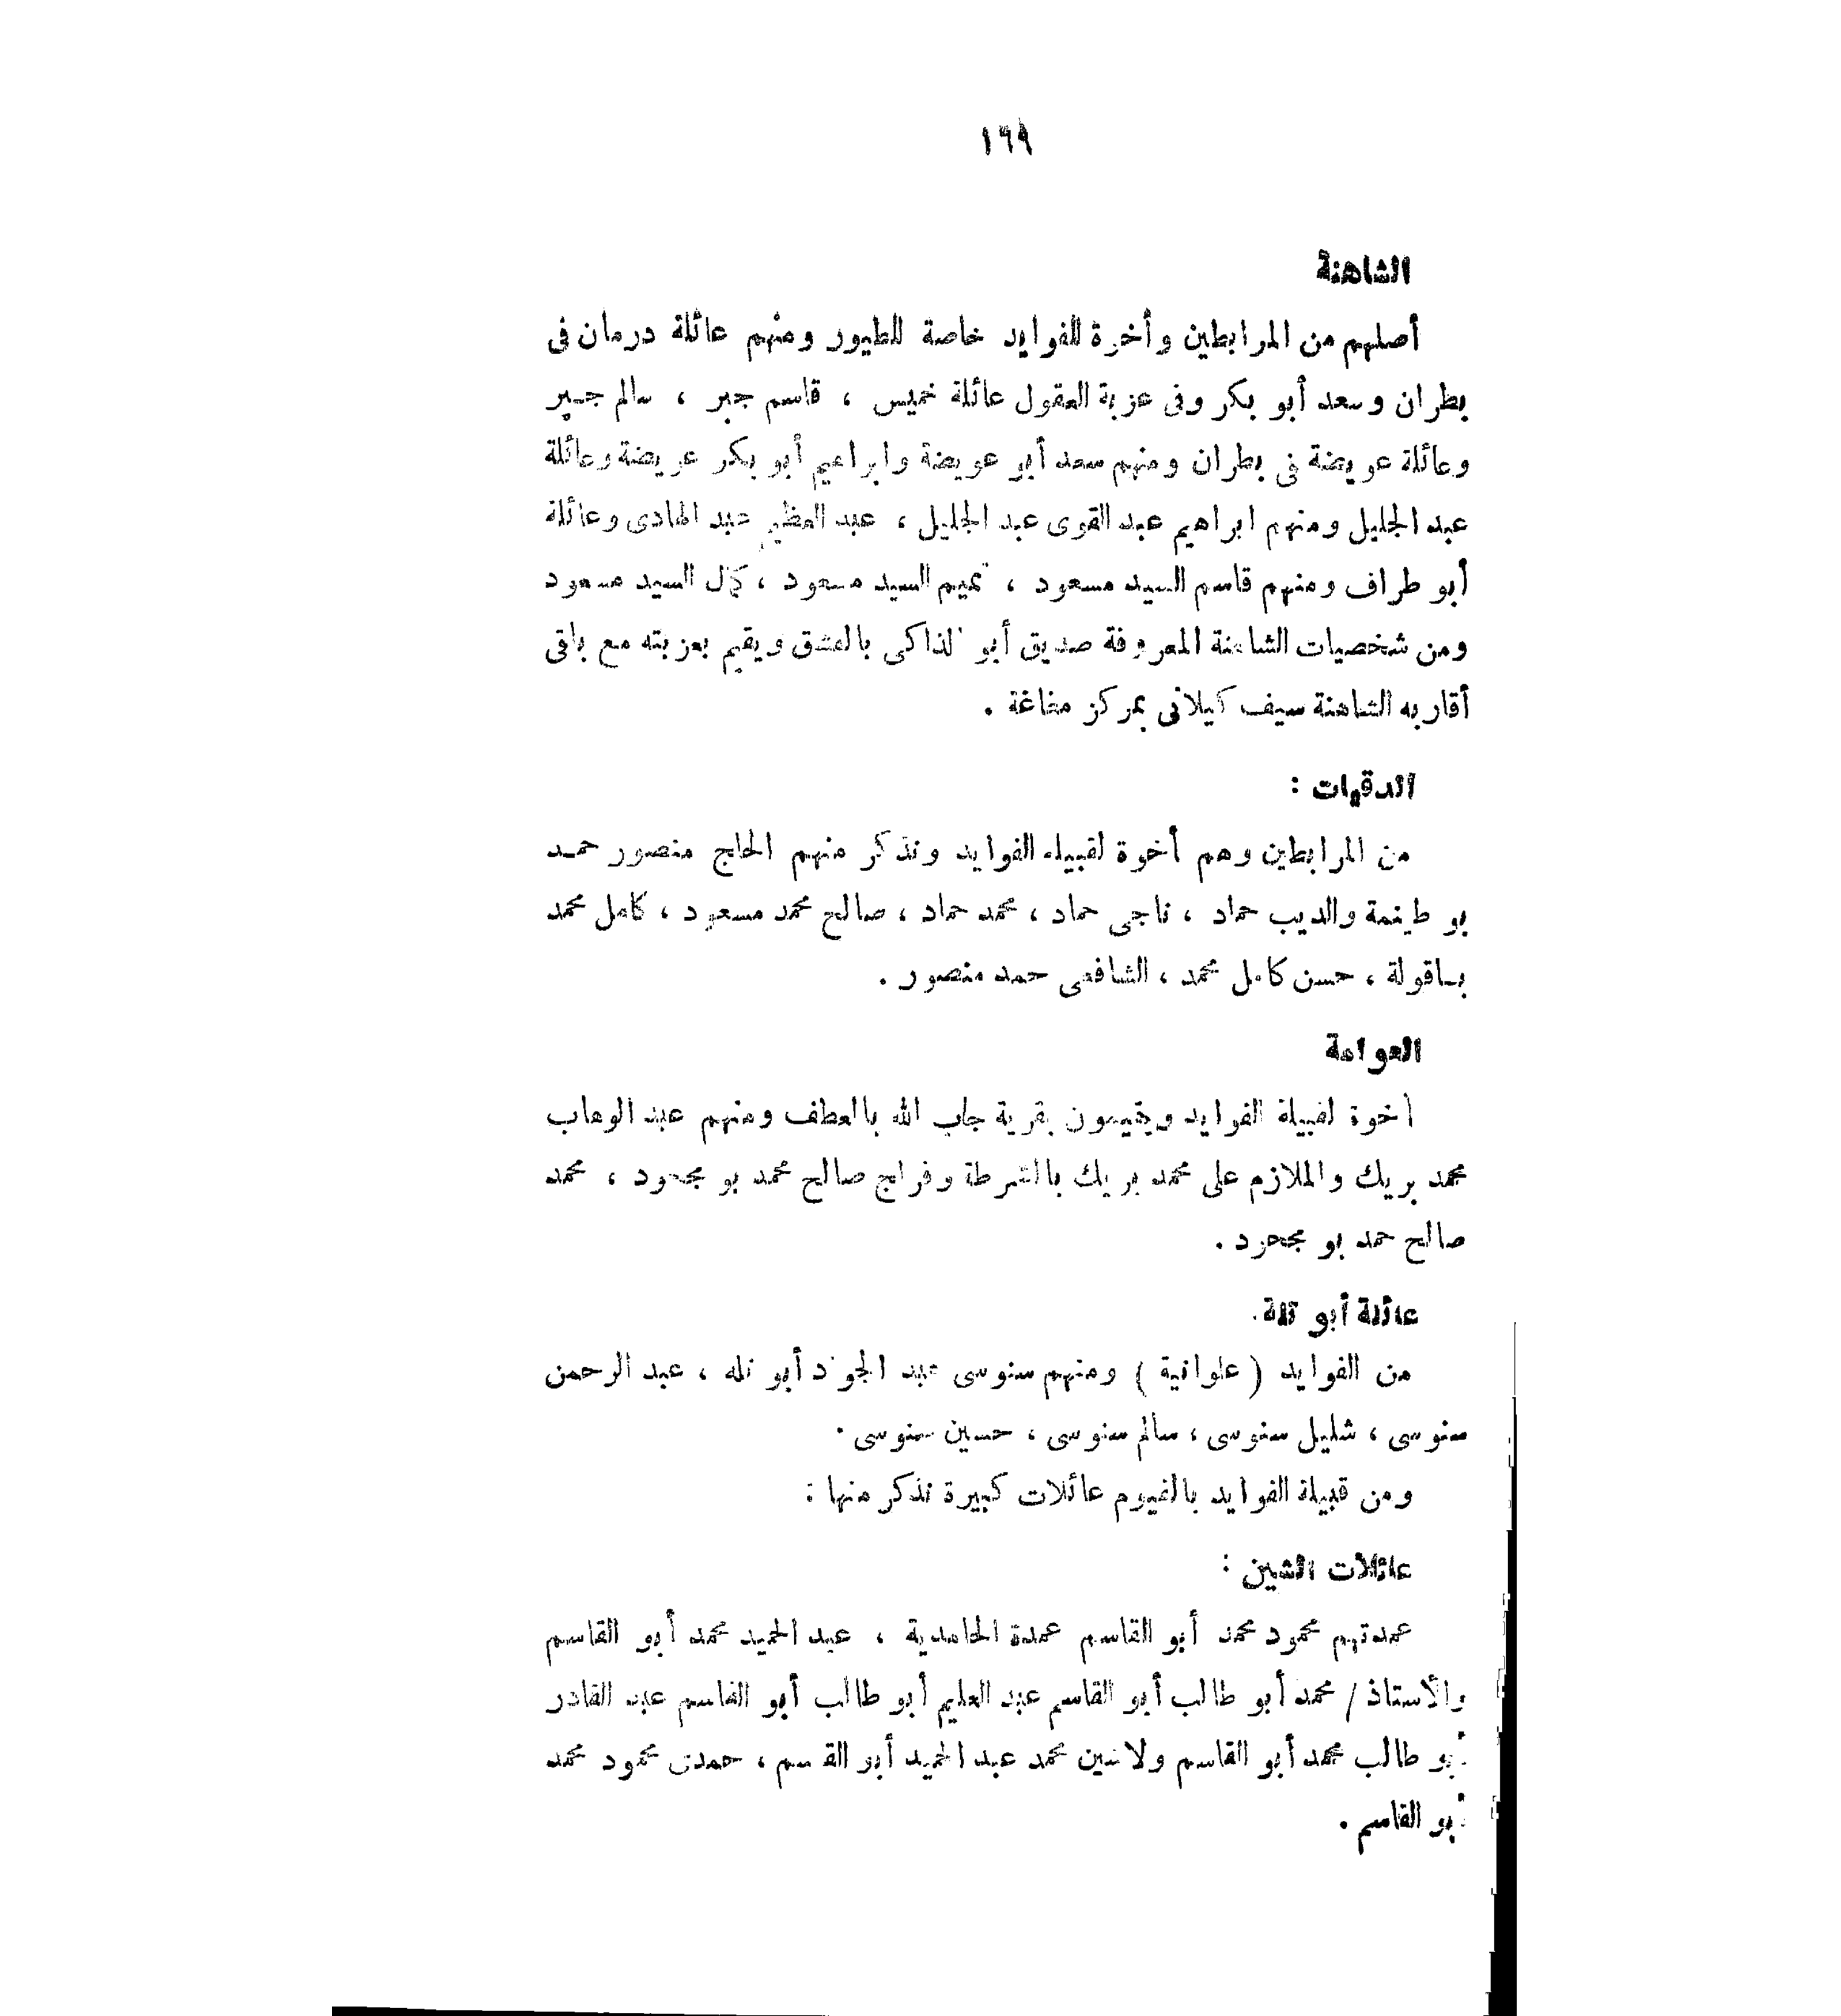 ١٦٩
الشاهنة
أصلهم من المرابطين وأخوة للفوايد خاصة للطيور ومنهم عائلة درمان فى
بطران وسعد أبو بكر وفى عزبة العقول عائلة خميس ، قاسم جبر ، سالم جبر
وعائلة عويضة فى بطران ومنهم سعد أبو عويضة وابراهيم أبو بكر عريضة وعائلة
عبد الجليل ومنهم ابراهيم عبد القوى عبد الجليل ، عبد العظيم عبد الهادى وعائلة
أبو طراف ومنهم قاسم السيد مسعود ، تميم السيد مسعود ، كمال السيد مسعود
ومن شخصيات الشاهنة المعروفة صديق أبو الذاكى بالعشق ويقيم بعزبته مع باقى
أقاربه الشاهنة سيف كيلانى بمركز مغاغة .
الدقهات :
من المرابطين وهم أخوة لقبيلة الفوايد ونذكر منهم الحاج منصور حمد
بو طيغمة والديب حماد ، ناجى حماد ، محمد حماد ، صالح محمد مسعود ، كامل محمد
بساقولة ، حسن كامل محمد ، الشافعى حمد منصور .
العوامة
أخوة لقبيلة الفوايد ويقيمون بقرية جاب الله بالعطف ومنهم عبد الوهاب
محمد بريك والملازم على محمد بريك بالشرطة وفراج صالح محمد بو مجحود ، محمد
صالح حمد بو مجحود .
عائلة أبو تلة .
من الفوايد ( علوانية ) ومنهم سنوسى عبد الجواد أبو تله ، عبد الرحمن
سنوسى ، شليل سنوسى ، سالم سنوسى ، حسين سنوسى .
ومن قبيلة الفوايد بالفيوم عائلات كبيرة نذكر منها :
عائلات الشين :
عمدتهم محمود محمد أبو القاسم عمدة الحامدية ، عبد الحميد محمد أبو القاسم
والأستاذ / محمد أبو طالب أبو القاسم عبد العليم أبو طالب أبو القاسم عبد القادر
أبو طالب محمد أبو القاسم ولاشين محمد عبد الحميد أبو القاسم ، حمدى محمود محمد
أبو القاسم .